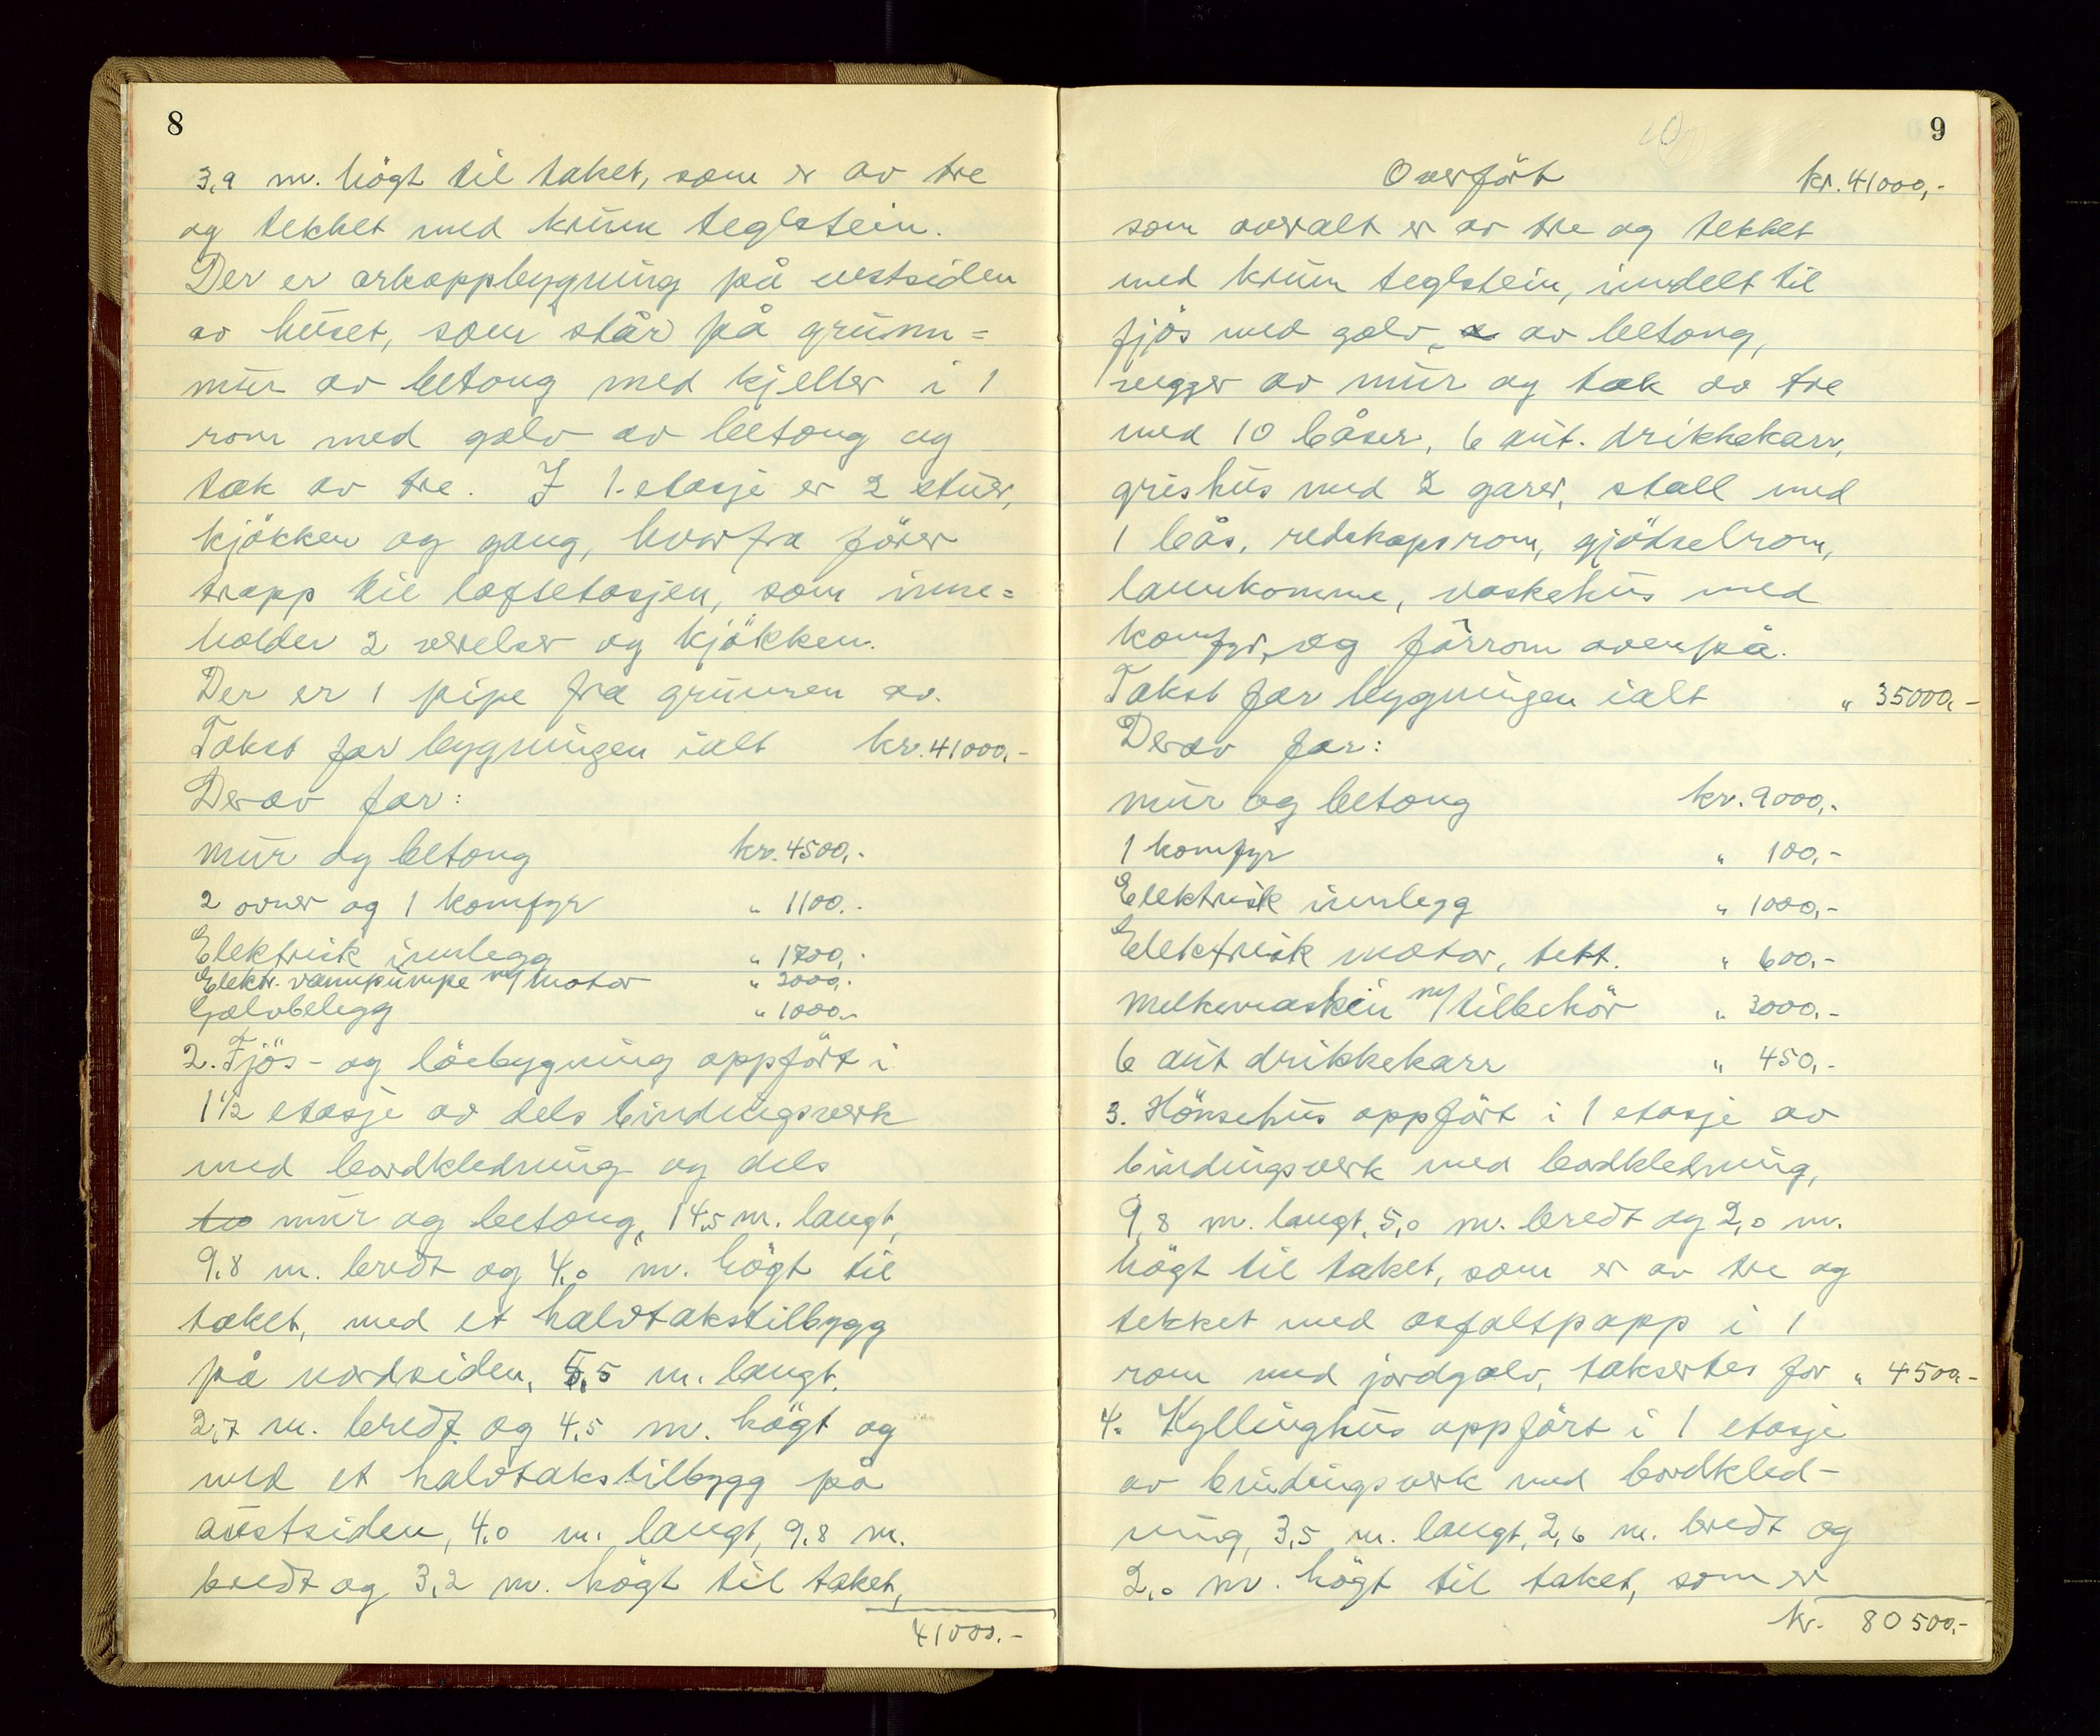 8
3,9 m. högt til taket, som er av tre
og tekket med krum teglstein.
Der er arkoppbygning på vestsiden
av huset, som står på grunn=
mur av betong med kjeller i 1
rom med golv av betong og
tak av tre. I 1. etasje er 2 stuer,
kjökken og gang, hvorfra förer
trapp til loftsetasjen, som inne=
holder 2 værelser og kjökken.
Der er 1 pipe fra grunnen av.
Takst for bygningen ialt kr. 41000,-
Derav for:
mur og betong kr. 4500,-
2 ovner og 1 komfyr " 1100.-
Elektrisk innlegg " 1700,-
Elektr. vannpumpe m/motor " 2000,-
Golvbelegg " 1000,-
2. Fjös- og löebygning oppfört i
1 1/2 etasje av dels bindingsverk
med bordkledning og dels
mur og betong, 14,5 m. langt,
9,8 m. bredt og 4,0 m. högt til
taket, med et halvtakstilbygg
på nordsiden, 5,5 m. langt,
2,7 m. bredt og 4,5 m. högt og
med et halvtakstilbygg på
austsiden, 4,0 m. langt, 9,8 m.
bredt og 3,2 m. högt til taket,
41000.-
9
Overfört kr. 41000,-
som overalt er av tre og tekket
med krum teglstein, inndelt til
fjös med golv av betong,
vegger av mur og tak av tre
med 10 båser, 6 aut. drikkekarr,
grishus med 2 garer, stall med
1 bås, redskapsrom, gjödselrom,
lannkomme, vaskehus med
komfyr, og förrom ovenpå.
Takst for bygningen ialt " 35000,-
Derav for:
mur og betong kr. 9000,-
1 komfyr " 100,-
Elektrisk innlegg " 1000,-
Elektrisk motor, tett. " 600,-
Melkemaskin m/tilbehör " 3000,-
6 aut drikkekarr " 450,-
3. Hönsehus oppfört i 1 etasje av
bindingsverk med bordkledning,
9,8 m. langt, 5,0 m. bredt og 2,0 m.
högt til taket, som er av tre og
tekket med asfaltpapp i 1
rom med jordgolv, taksertes for " 4500,-
4. Kyllinghus oppfört i 1 etasje
av bindingsverk med bordkled-
ning, 3,5 m. langt, 2,6 m. bredt og
2,0 m. högt til taket, som er
kr. 80500,-